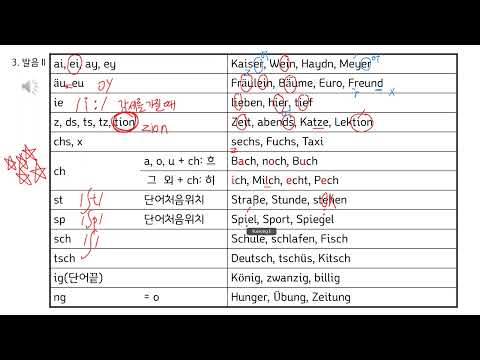 3. 발음 II
ai, ei, ay, ey Kaiser, Wein, Haydn, Meyer
äu, eu oy Fräulein, Bäume, Euro, Freund
ie /i:/ 강세를 가질 때 lieben, hier, tief
z, ds, ts, tz, tion zion Zeit, abends, Katze, Lektion
chs, x sechs, Fuchs, Taxi
ch a, o, u + ch: 흐 Bach, noch, Buch
그 외 + ch: 히 ich, Milch, echt, Pech
st /ʃt/ 단어처음위치 Straße, Stunde, stehen
sp /ʃp/ 단어처음위치 Spiel, Sport, Spiegel
sch /ʃ/ Schule, schlafen, Fisch
tsch Deutsch, tschüs, Kitsch
ig(단어끝) König, zwanzig, billig
ng = o Hunger, Übung, Zeitung